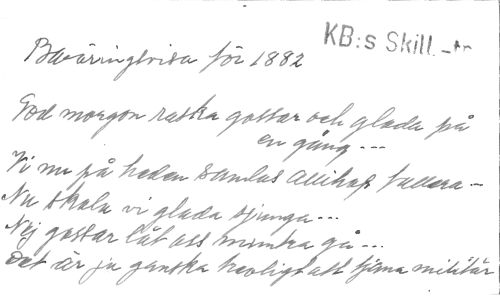 KB:s Skill. –tr
Beväringsvisa för 1882
God morgon raska gossar och glada på
en gång ---
Vi nu på heden samlas allihop fallera –
Nu skola vi glada sjunga ---
Nej gossar låt oss muntra gå ---
Det är ju ganska trevligt att tjäna militär